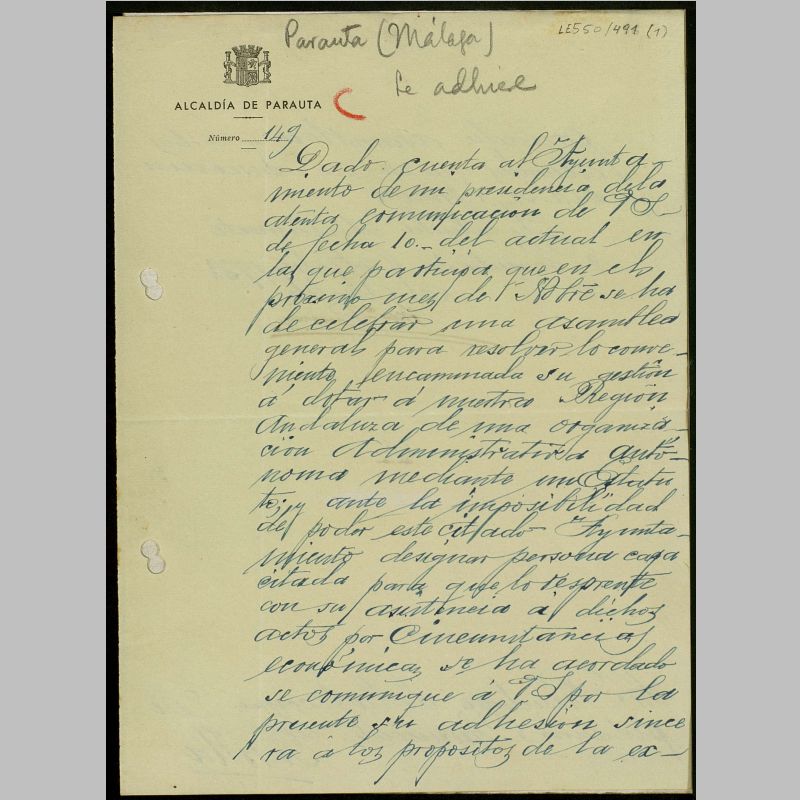 LE550/491 (1)
Parauta (Málaga)
Se adhiere
ALCALDÍA DE PARAUTA
Número 149
Dado cuenta al Ayunta-
miento de mi presidencia de la
atenta comunicación de VS
de fecha 10 del actual en
la que participa que en el
próximo mes de Nobre se ha
de celebrar una asamblea
general para resolver lo conve-
niente encaminada su gestión
á dotar á nuestra Región
Andaluza de una organiza-
cion Administrativa autó-
noma mediante un Estatu
to; y ante la imposibilidad
de poder este citado Ayunta-
miento designar persona capa
citada para que lo represente
con su asistencia á dichos
actos por Circunstancias
económicas, se ha acordado
se comunique á VS por la
presente su adhesión since
ra á los propositos de la ex-